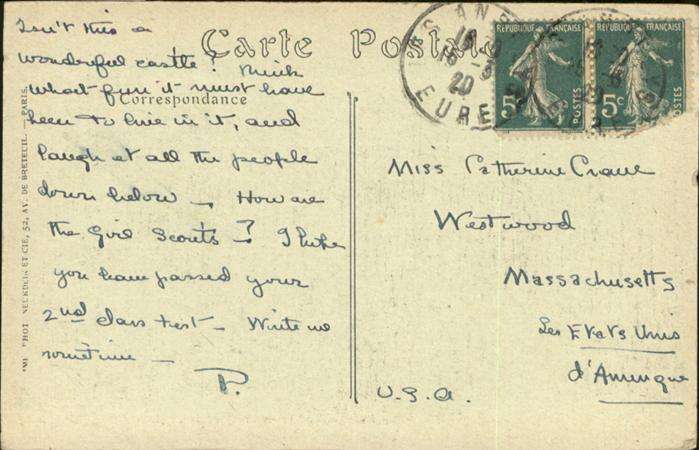 Isn't this a
wonderful castle! Think
what fun it must have
been to live in it, and
laugh at all the people
down below — How are
the Girl Scouts —? I hope
you have passed your
2nd class test — Write me
sometime —
P.
Carte Postale
Correspondance
NEURDEIN ET CIE, 52, AV. DE BRETEUIL — PARIS
ANDE
EURE
20
REPUBLIQUE FRANÇAISE
5c
POSTES
REPUBLIQUE FRANÇAISE
5c
POSTES
Miss Catherine Crane
Westwood
Massachusetts
Les Etats Unis
d'Amerique
U.S.A.